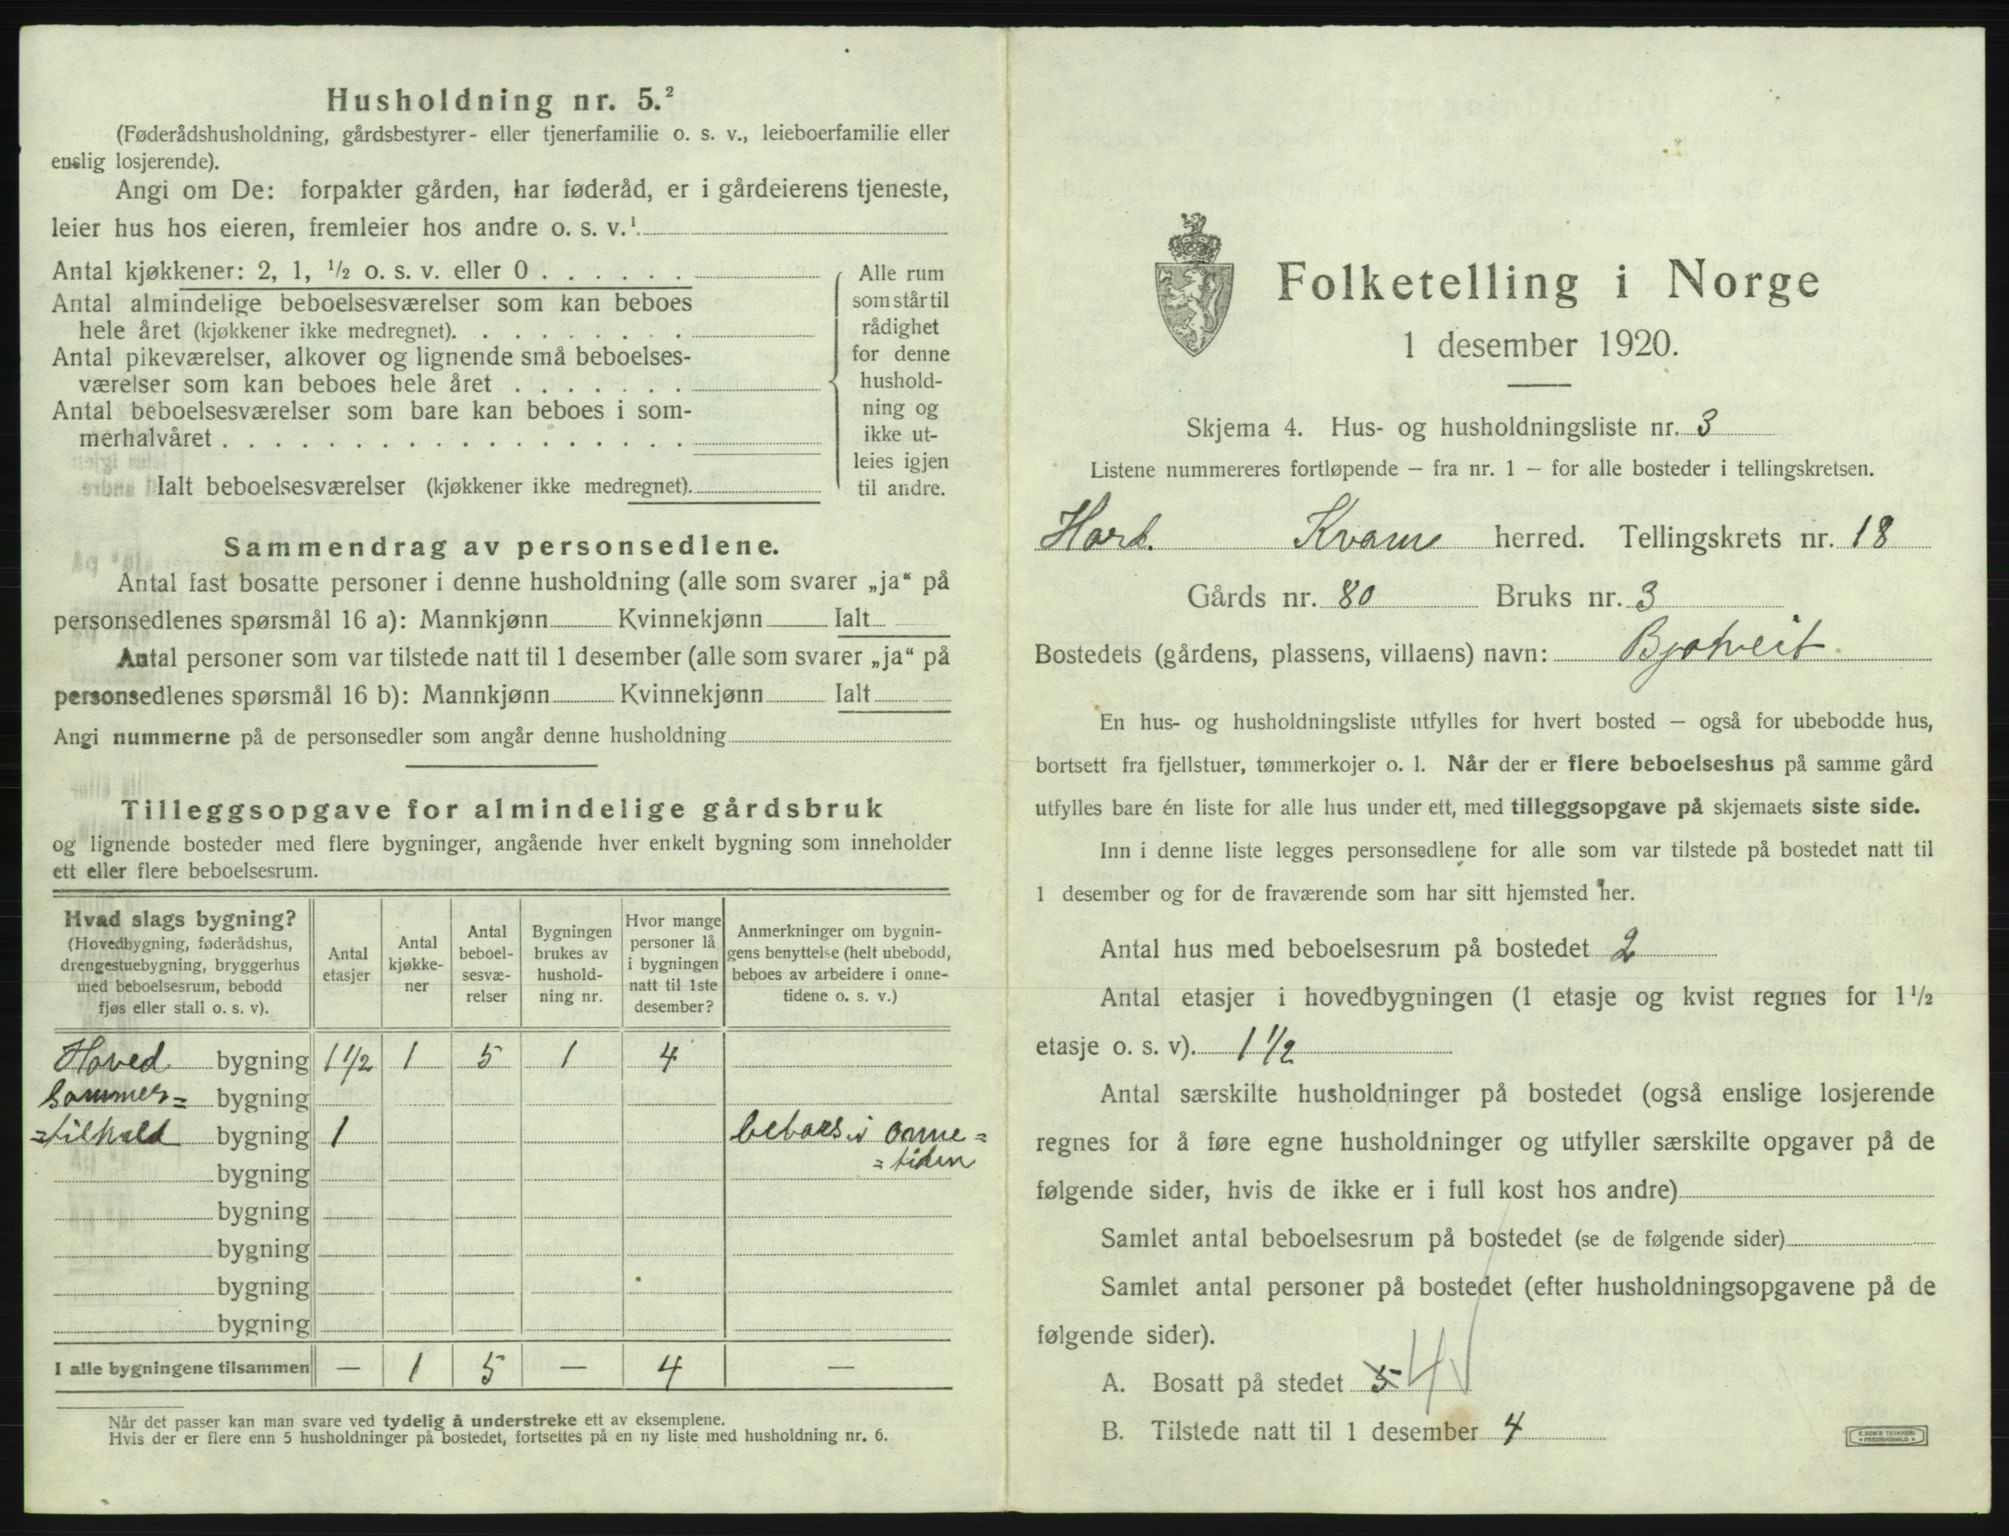 Husholdning nr. 5.²
(Føderådshusholdning, gårdsbestyrer- eller tjenerfamilie o. s. v., leieboerfamilie eller
enslig losjerende).
Angi om De: forpakter gården, har føderåd, er i gårdeierens tjeneste,
leier hus hos eieren, fremleier hos andre o. s. v.¹
Antal kjøkkener: 2, 1, ½ o. s. v. eller 0 . . . . . .
Antal almindelige beboelsesværelser som kan beboes
hele året (kjøkkener ikke medregnet). . . . . . . . .
Antal pikeværelser, alkover og lignende små beboelses-
værelser som kan beboes hele året . . . . . . .
Antal beboelsesværelser som bare kan beboes i som-
merhalvåret . . . . . . . . . . . . . . . . . .
Ialt beboelsesværelser (kjøkkener ikke medregnet).
Alle rum
som står til
rådighet
for denne
hushold-
ning og
ikke ut-
leies igjen
til andre.
Sammendrag av personsedlene.
Antal fast bosatte personer i denne husholdning (alle som svarer „ja“ på
personsedlenes spørsmål 16 a): Mannkjønn Kvinnekjønn Ialt
Antal personer som var tilstede natt til 1 desember (alle som svarer „ja“ på
personsedlenes spørsmål 16 b): Mannkjønn Kvinnekjønn Ialt
Angi nummerne på de personsedler som angår denne husholdning
Tilleggsopgave for almindelige gårdsbruk
og lignende bosteder med flere bygninger, angående hver enkelt bygning som inneholder
ett eller flere beboelsesrum.
Hvad slags bygning?
(Hovedbygning, føderådshus,
drengestuebygning, bryggerhus
med beboelsesrum, bebodd
fjøs eller stall o. s. v).
Antal
etasjer
Antal
kjøkke-
ner
Antal
beboel-
sesvæ-
relser
Bygningen
brukes av
hushold-
ning nr.
Hvor mange
personer lå
i bygningen
natt til 1ste
desember?
Anmerkninger om bygnin-
gens benyttelse (helt ubebodd,
beboes av arbeidere i onne-
tidene o. s. v.)
Hoved bygning 1 1/2 1 5 1 4
Sommer= bygning
=tilhald bygning 1 beboes i onne=
=tiden
bygning
bygning
bygning
bygning
bygning
I alle bygningene tilsammen — 1 5 — 4 —
Når det passer kan man svare ved tydelig å understreke ett av eksemplene.
Hvis der er flere enn 5 husholdninger på bostedet, fortsettes på en ny liste med husholdning nr. 6.
Folketelling i Norge
1 desember 1920.
Skjema 4. Hus- og husholdningsliste nr. 3
Listene nummereres fortløpende – fra nr. 1 – for alle bosteder i tellingskretsen.
Hard. Kvam herred. Tellingskrets nr. 18
Gårds nr. 80 Bruks nr. 3
Bostedets (gårdens, plassens, villaens) navn: Bjotveit
En hus- og husholdningsliste utfylles for hvert bosted – også for ubebodde hus,
bortsett fra fjellstuer, tømmerkojer o. l. Når der er flere beboelseshus på samme gård
utfylles bare én liste for alle hus under ett, med tilleggsopgave på skjemaets siste side.
Inn i denne liste legges personsedlene for alle som var tilstede på bostedet natt til
1 desember og for de fraværende som har sitt hjemsted her.
Antal hus med beboelsesrum på bostedet 2
Antal etasjer i hovedbygningen (1 etasje og kvist regnes for 1½
etasje o. s. v). 1 1/2
Antal særskilte husholdninger på bostedet (også enslige losjerende
regnes for å føre egne husholdninger og utfyller særskilte opgaver på de
følgende sider, hvis de ikke er i full kost hos andre)
Samlet antal beboelsesrum på bostedet (se de følgende sider)
Samlet antal personer på bostedet (efter husholdningsopgavene på de
følgende sider).
A. Bosatt på stedet 5 4
B. Tilstede natt til 1 desember 4
E. SEM'S TRYKKERI
FREDRIKSHALD